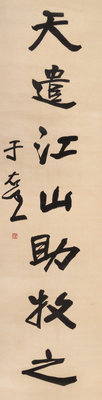 天遣江山助牧之
于右任